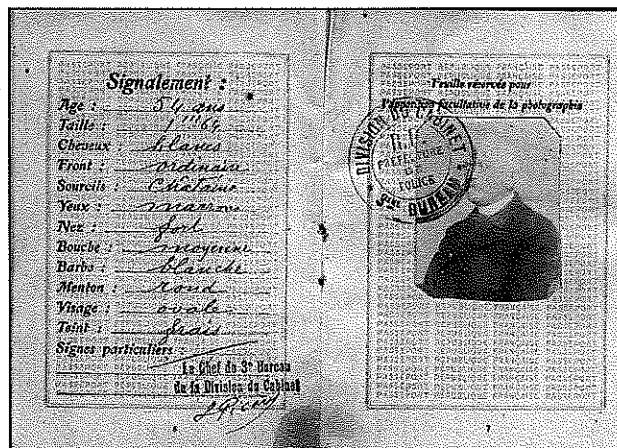 Signalement :
Age : 54 ans
Taille : 1m64
Cheveux : blancs
Front : ordinaire
Sourcils : Chatains
Yeux : marrons
Nez : fort
Bouche : moyenne
Barbe : blanche
Menton : rond
Visage : ovale
Teint : frais
Signes particuliers :
Le Chef du 3e Bureau
de la Division du Cabinet
6
Feuille réservée pour
l'apposition facultative de la photographie
DIVISION DU CABINET
PREFECTURE
DE
POLICE
BUREAU
7